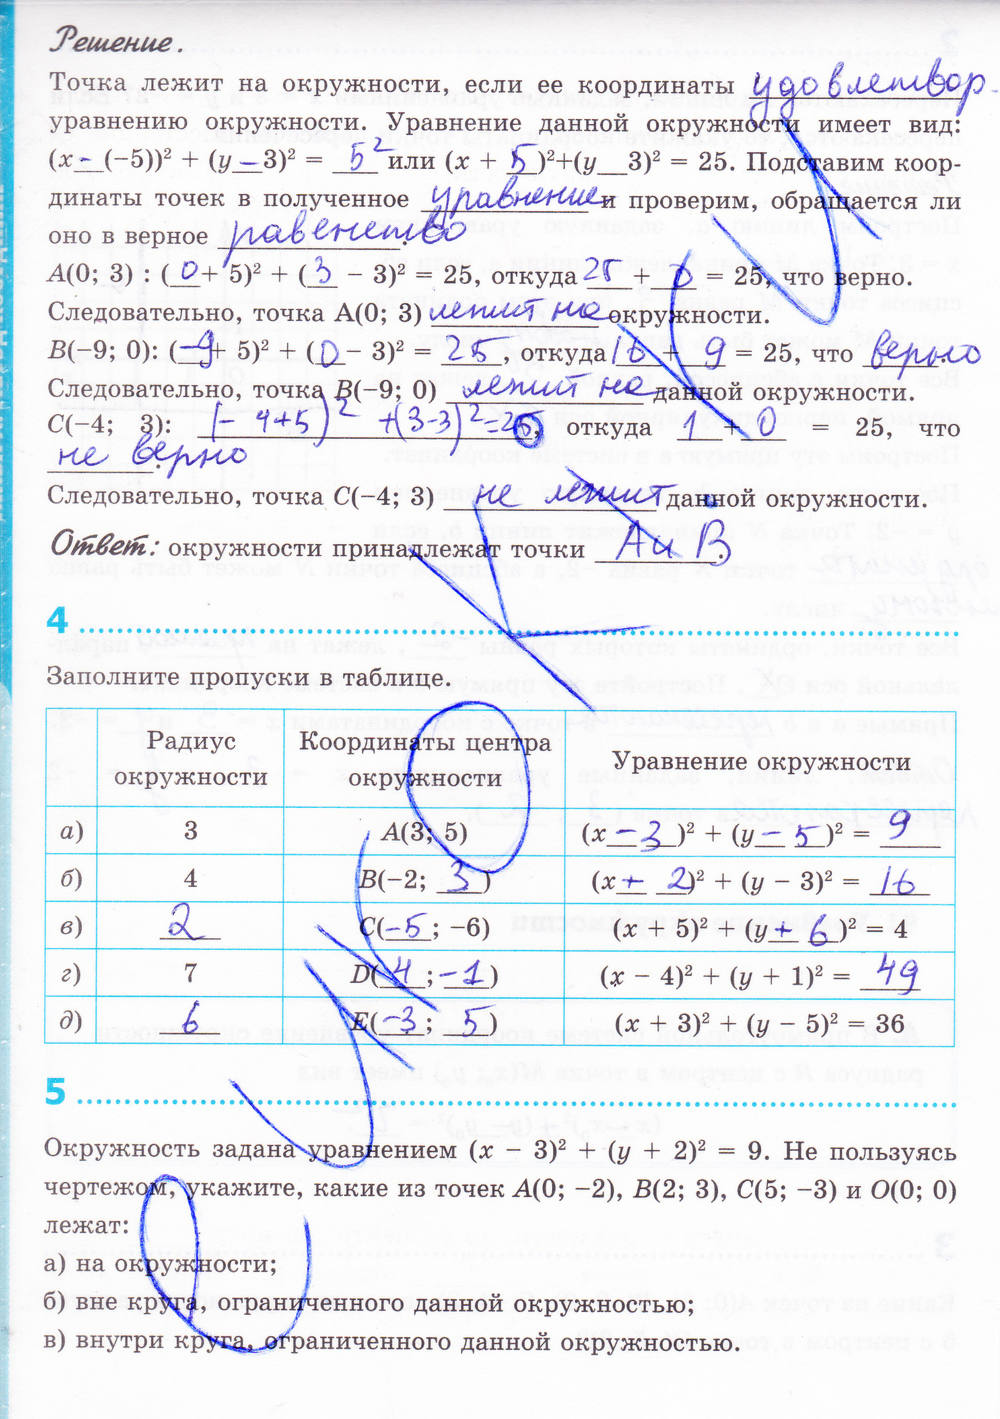 Решение.
Точка лежит на окружности, если ее координаты удовлетвор.
уравнению окружности. Уравнение данной окружности имеет вид:
(x - (−5))² + (y − 3)² = 5² или (x + 5)²+(y 3)² = 25. Подставим коор-
динаты точек в полученное уравнение и проверим, обращается ли
оно в верное равенство.
A(0; 3) : (0 + 5)² + (3 − 3)² = 25, откуда 25 + 0 = 25, что верно.
Следовательно, точка A(0; 3) лежит на окружности.
B(−9; 0): (−9 + 5)² + (0 − 3)² = 25, откуда 16 + 9 = 25, что верно.
Следовательно, точка B(−9; 0) лежит на данной окружности.
C(−4; 3): (−4+5)² +(3-3)²=25, откуда 1 + 0 = 25, что
не верно.
Следовательно, точка C(−4; 3) не лежит данной окружности.
Ответ: окружности принадлежат точки A и B.
4
Заполните пропуски в таблице.
Радиус окружности Координаты центра окружности Уравнение окружности
а) 3 A(3; 5) (x − 3)² + (y − 5)² = 9
б) 4 B(−2; 3) (x + 2)² + (y − 3)² = 16
в) 2 C(−5; −6) (x + 5)² + (y + 6)² = 4
г) 7 D(4; −1) (x − 4)² + (y + 1)² = 49
д) 6 E(−3; 5) (x + 3)² + (y − 5)² = 36
5
Окружность задана уравнением (x − 3)² + (y + 2)² = 9. Не пользуясь
чертежом, укажите, какие из точек A(0; −2), B(2; 3), C(5; −3) и O(0; 0)
лежат:
а) на окружности;
б) вне круга, ограниченного данной окружностью;
в) внутри круга, ограниченного данной окружностью.